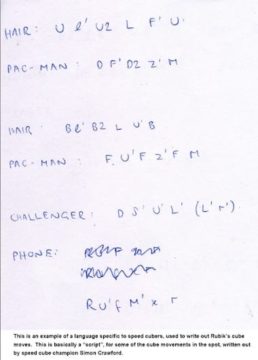 HAIR: U l' U2 L F' U'
PAC-MAN: D F' D2 Z' M
HAIR: B l' B2 L U' B
PAC-MAN: F U' F Z' F M
CHALLENGER: D S' U' L' (L' r')
PHONE:
R U' f M' x r
This is an example of a language specific to speed cubers, used to write out Rubik's cube
moves. This is basically a "script", for some of the cube movements in the spot, written out
by speed cube champion Simon Crawford.